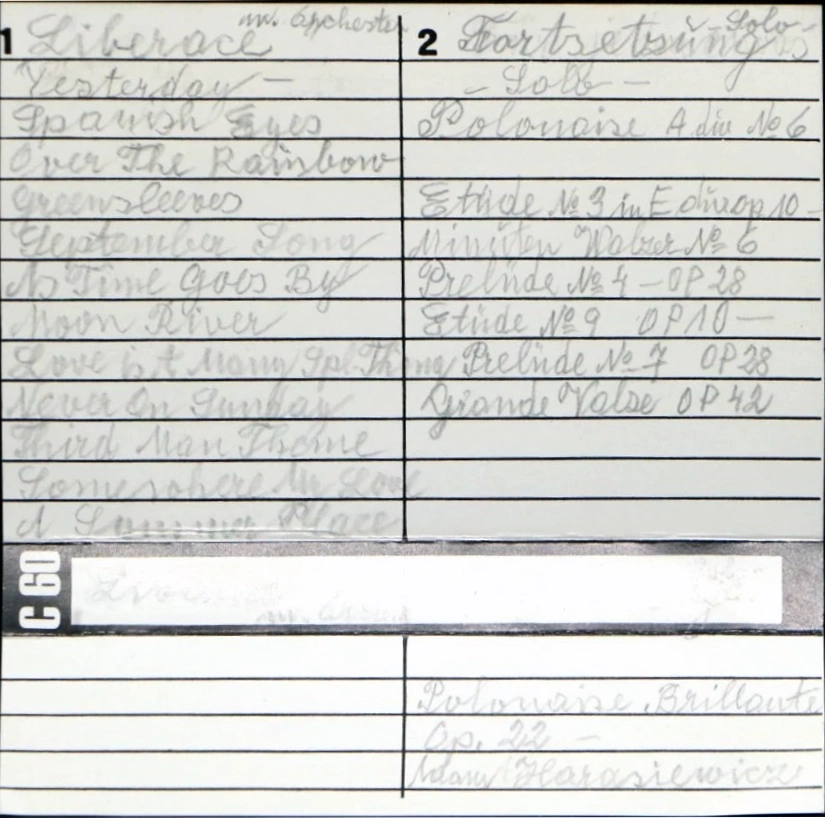 1 Liberace m. Orchester
Yesterday –
Spanish Eyes
Over The Rainbow
Greensleeves
September Song
As Time Goes By
Moon River
Love is A Many Spl. Thing
Never On Sunday
Third Man Theme
Somewhere My Love
A Summer Place
2 Fortsetzung – Solo –
– Solo –
Polonaise A dur № 6
Etüde № 3 in E dur op 10 –
Minüten Walzer № 6
Prelüde № 4 – OP 28
Etüde № 9 OP 10 –
Prelüde № 7 OP 28
Grande Valse OP 42
C 60
Polonaise Brillante
Op. 22 –
Adam Harasiewicz